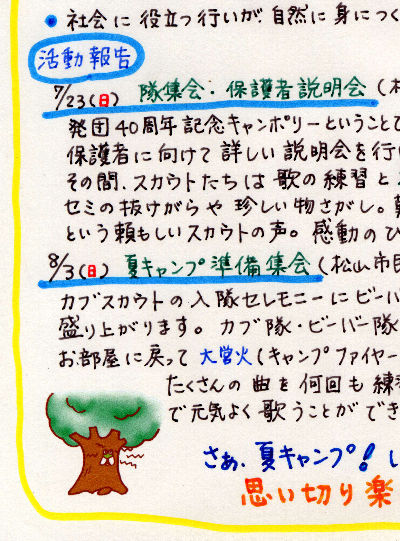 ● 社会に役立つ行いが自然に身につく
活動報告
7/23(日) 隊集会・保護者説明会(
発団40周年記念キャンポリーということで
保護者に向けて詳しい説明会を行い
その間、スカウトたちは歌の練習と
セミの抜けがらや珍しい物さがし。
という頼もしいスカウトの声。感動のひ
8/3(日) 夏キャンプ準備集会(松山市民
カブスカウトの入隊セレモニーにビーバ
盛り上がります。カブ隊・ビーバー隊
お部屋に戻って大営火(キャンプファイヤー
たくさんの曲を何回も練習
で元気よく歌うことができ
さぁ、夏キャンプ!い
思い切り楽